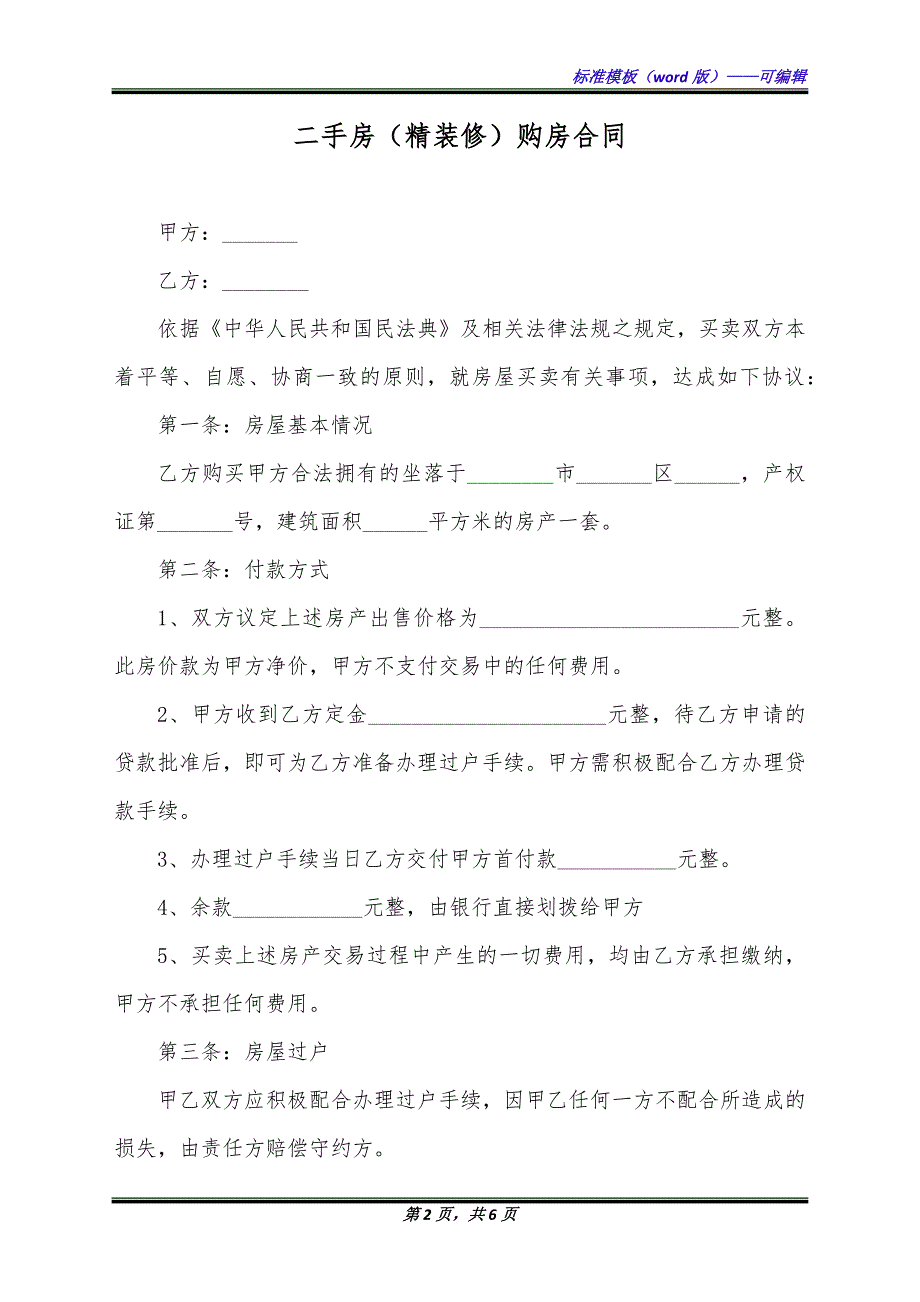 标准模板（word 版）——可编辑
二手房（精装修）购房合同
甲方：_______
乙方：________
依据《中华人民共和国民法典》及相关法律法规之规定，买卖双方本
着平等、自愿、协商一致的原则，就房屋买卖有关事项，达成如下协议：
第一条：房屋基本情况
乙方购买甲方合法拥有的坐落于________市_______区______，产权
证第_______号，建筑面积______平方米的房产一套。
第二条：付款方式
1、双方议定上述房产出售价格为________________________元整。
此房价款为甲方净价，甲方不支付交易中的任何费用。
2、甲方收到乙方定金______________________元整，待乙方申请的
贷款批准后，即可为乙方准备办理过户手续。甲方需积极配合乙方办理贷
款手续。
3、办理过户手续当日乙方交付甲方首付款___________元整。
4、余款____________元整，由银行直接划拨给甲方
5、买卖上述房产交易过程中产生的一切费用，均由乙方承担缴纳，
甲方不承担任何费用。
第三条：房屋过户
甲乙双方应积极配合办理过户手续，因甲乙任何一方不配合所造成的
损失，由责任方赔偿守约方。
第 2 页，共 6 页